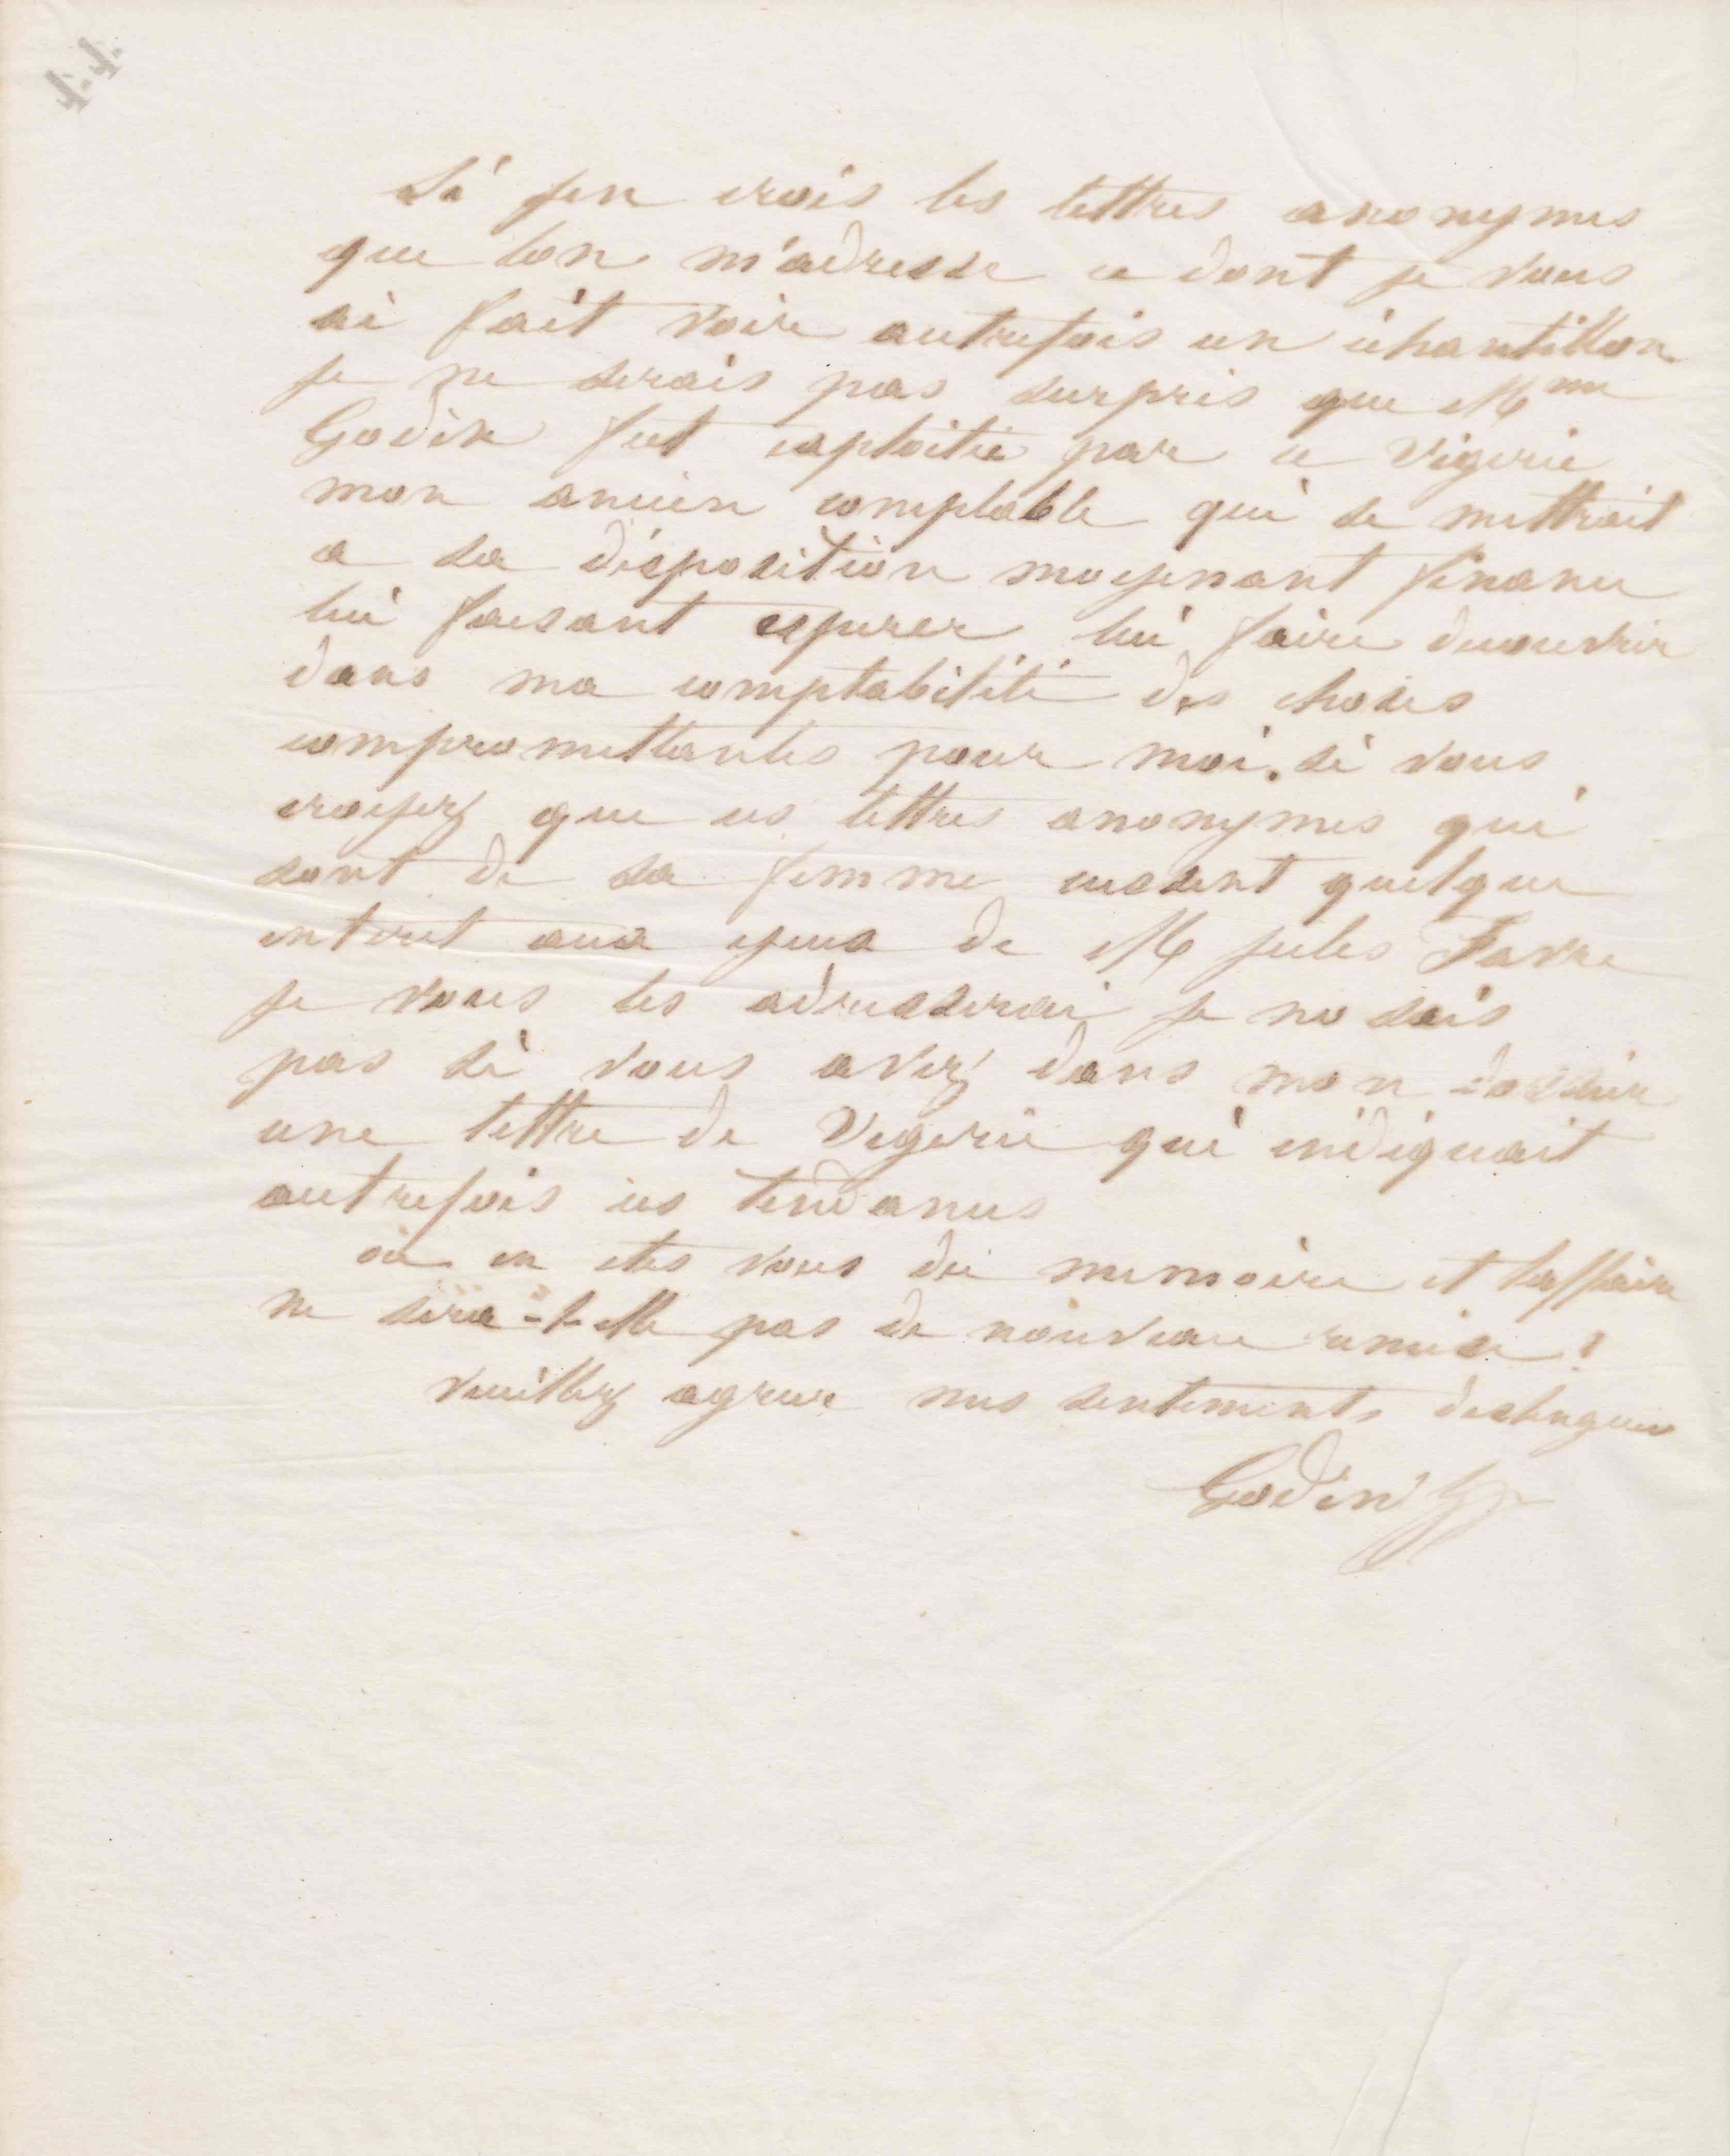 Si j'en crois les lettres anonymes
que lon m'adresse et dont je vous
ai fait voir autrefois un échantillon
je ne serais pas surpris que Mme
Godin fut exploitée par ce Vigerie
mon ancien comptable qui se mettrait
a sa disposition moyennant finance
lui faisant esperer lui faire decouvrir
dans ma comptabilité des choses
compromettantes pour moi. si vous
croyez que ces lettres anonymes qui
sont de sa femme eussent quelque
interet aux yeux de M Jules Favre
je vous les adresserai je ne sais
pas si vous avez dans mon dossier
une lettre de Vigerie qui indiquait
autrefois ces tendances
où en etes vous du memoire et laffaire
ne sera-t-elle pas de nouveau remise ?
veuillez agreer mes sentiments distingues
Godin